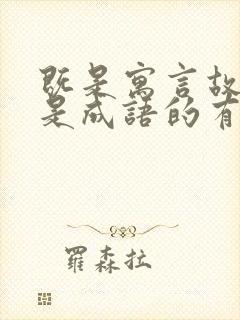 既是寓言故
是成語的有
羅森拉